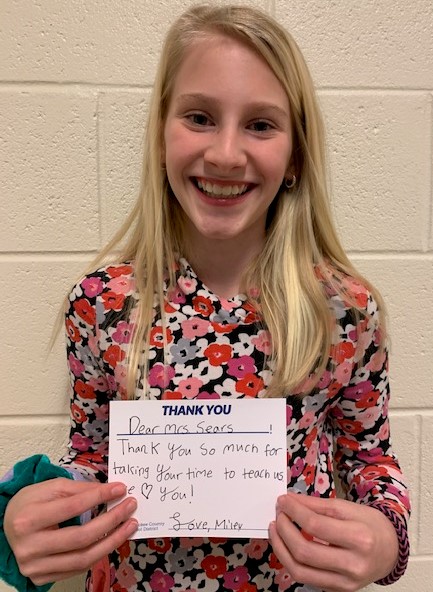 THANK YOU
Dear Mrs Sears !
Thank you so much for
taking your time to teach us
♡ you!
Love, Miley